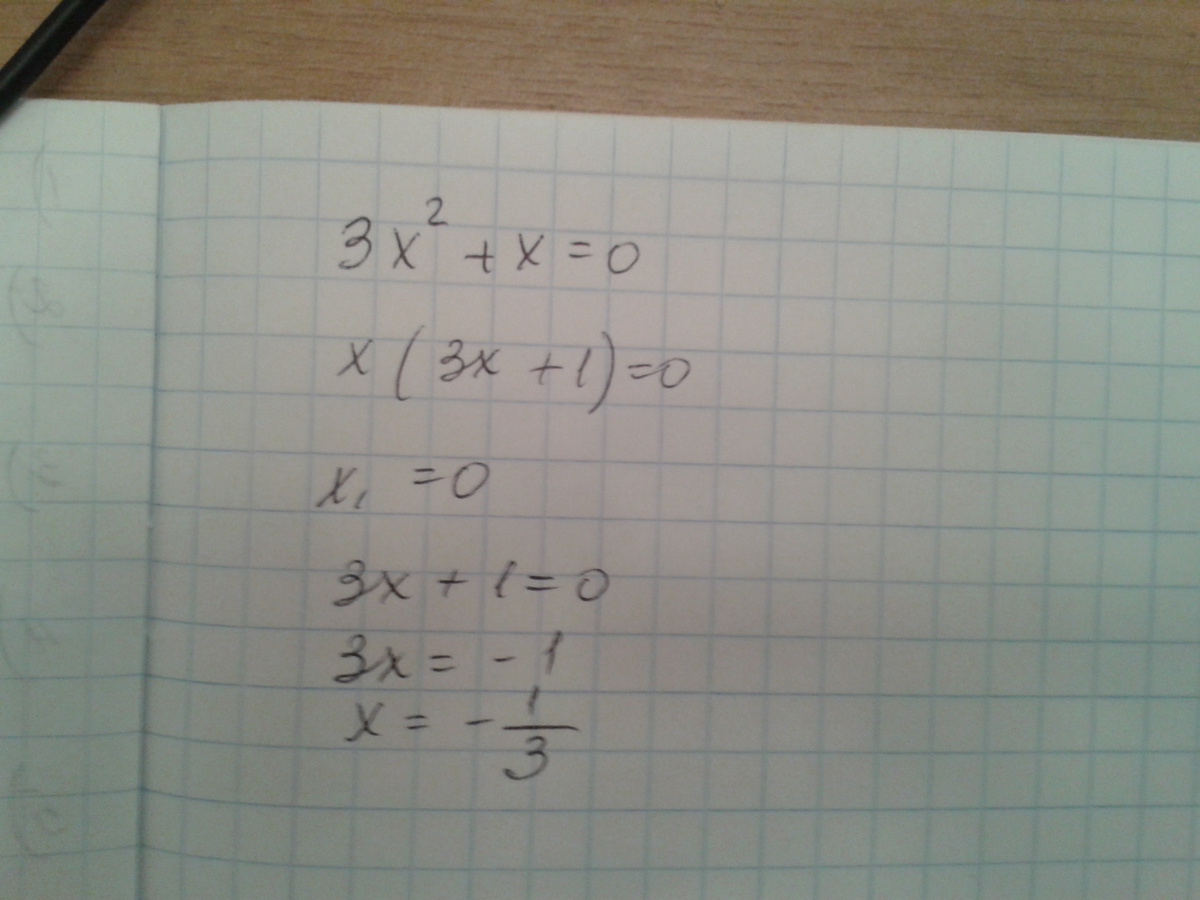 3x² + x = 0
x (3x + 1) = 0
x₁ = 0
3x + 1 = 0
3x = - 1
x = - 1/3